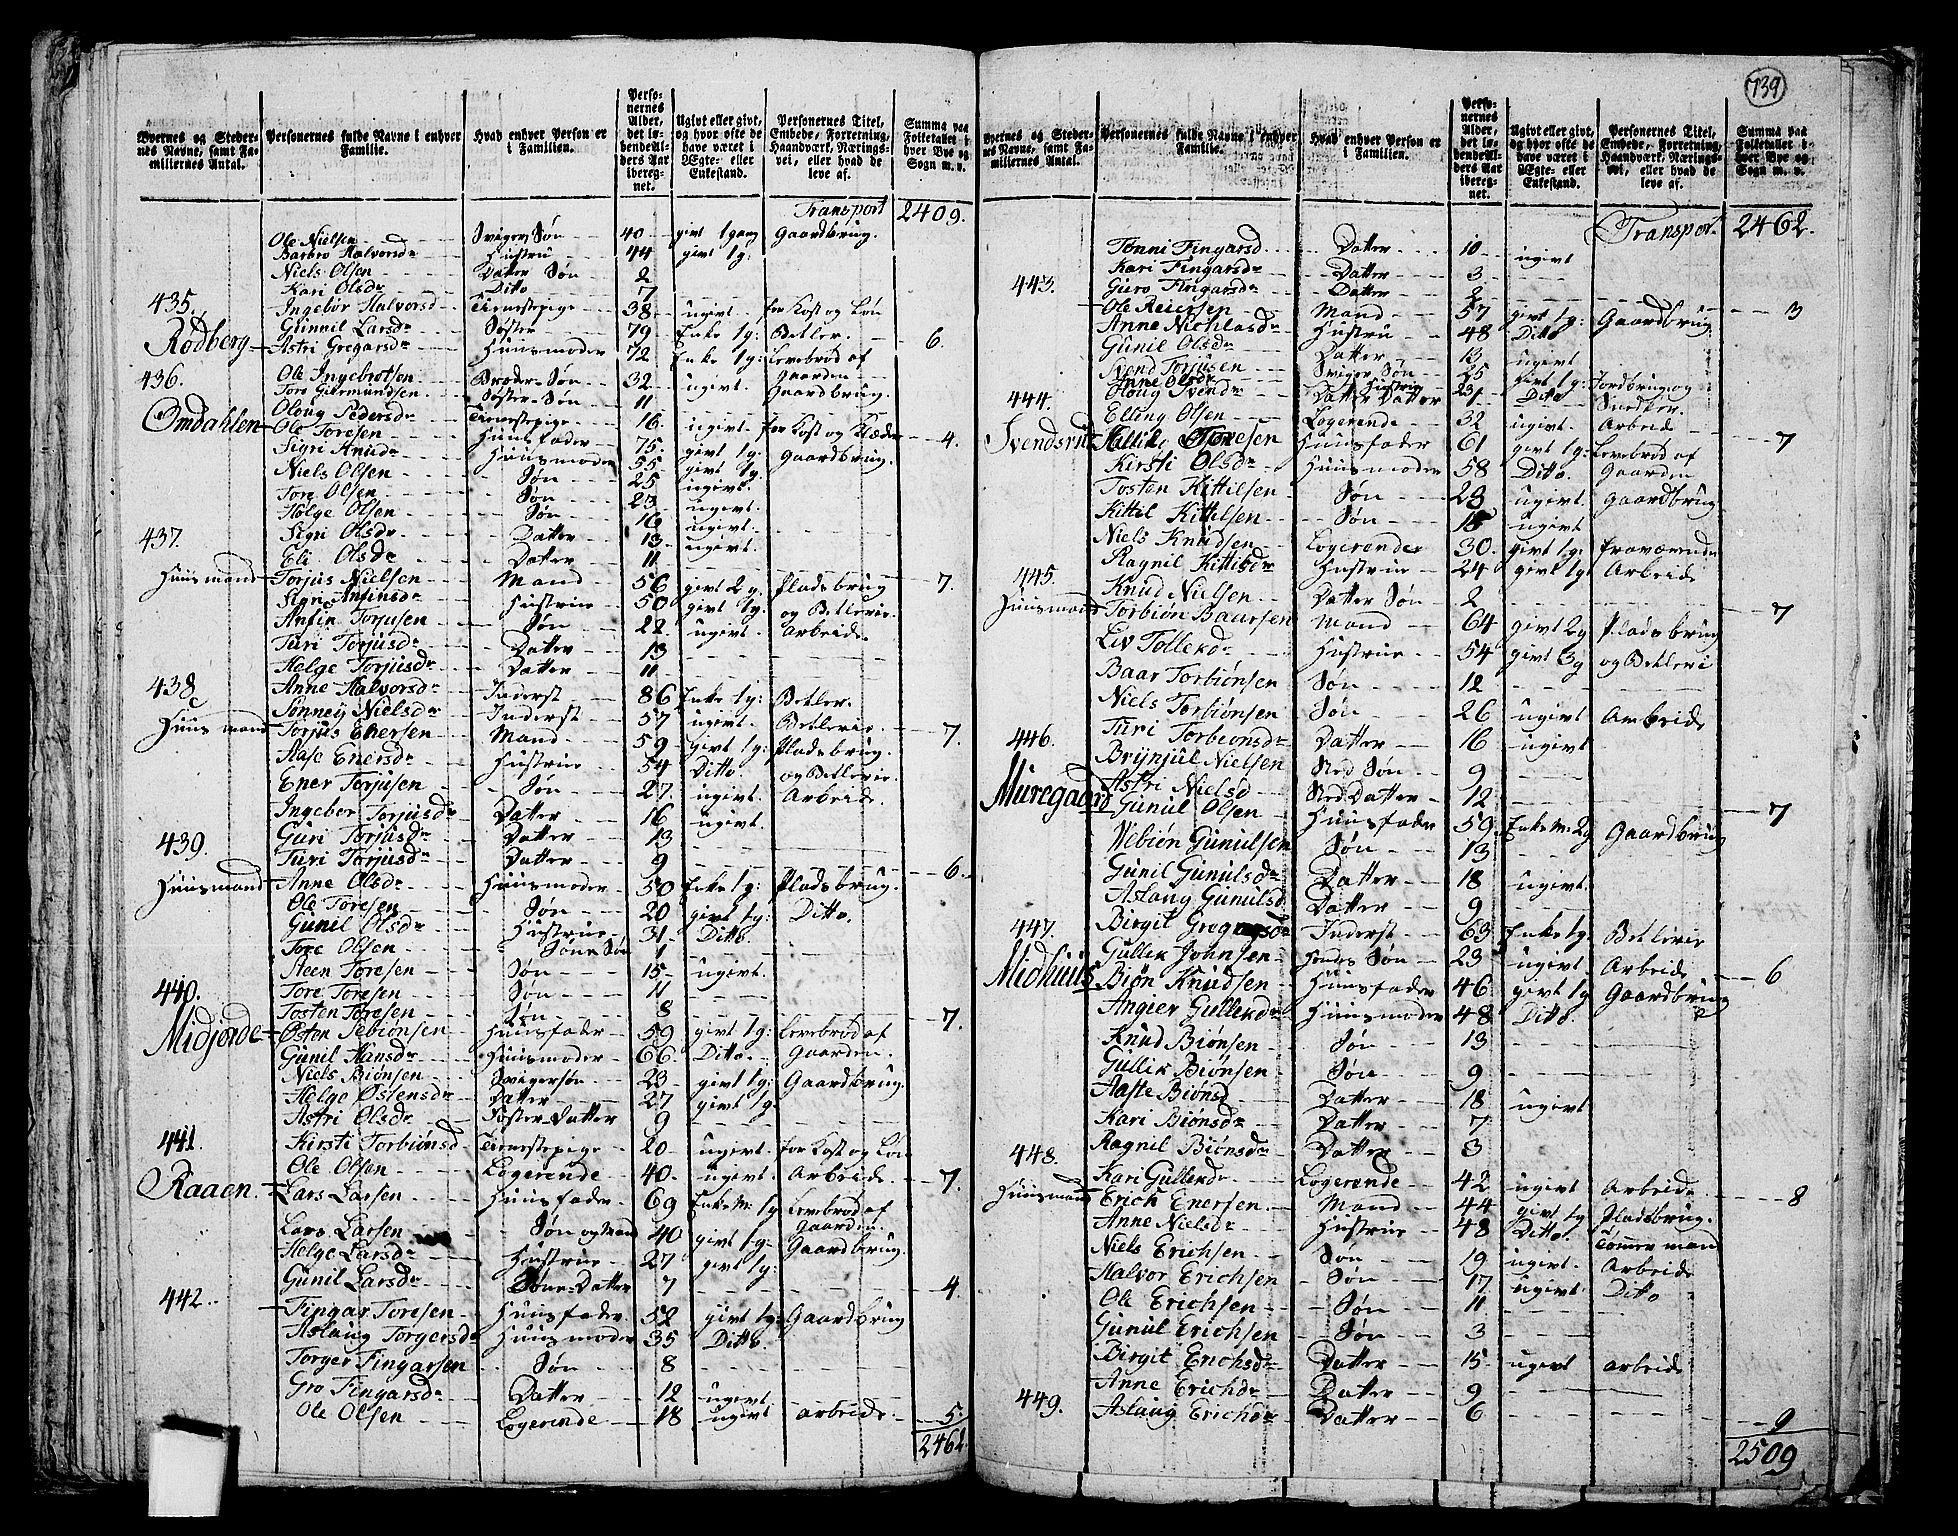 739
Byernes og Stedernes Navne, samt Familiernes Antal.
Personernes fulde Navne i enhver Familie.
Hvad enhver Person er i Familien.
Personernes Alder, det løbendeAlders Aar iberegnet.
Ugivt eller givt, og hvor ofte de have været i Ægte- eller Enkestand.
Personernes Titel, Embede, Forretning, Haandværk, Næringsvei, eller hvad de leve af.
Summa paa Folketallet i hver Bye og Sogn m. v.
Transport 2409.
Ole Nielsen Sviger Søn 40 givt 1 gang Gaardbrug.
Barbro Halvorsdr Hustru 44 givt 1g:
Niels Olsen Datter Søn 2
Kari Olsdr Ditto 7
435. Ingebor Halvorsd Tienestepige 38 ugivt for Kost og Løn
Gunnil Larsdr Søster 79 Enke 1g: Betler. 6.
Rødberg Astri Gregarsdr Huusmoder 72 Enke 1g: Levebrød af Gaarden
436. Ole Ingebrotsen Broder-Søn 32 ugivt. Gaardbrug.
Tore Giermundsen Søster-Søn 11
Oloug Pedersdr Tienestepige 16 ugivt. for Kost og Klæder 4.
Omdahlen Ole Toresen Huusfader 75 givt 1g: Gaardbrug.
Sigri Knudr Huusmoder 55 givt 1g:
Niels Olsen Søn 25 ugivt.
Tore Olsen Søn 23 ugivt.
Helge Olsen Søn 16 ugivt.
437. Sigri Olsdr Datter 13 ugivt.
Eli Olsdr Datter 11
Huusmand Torjus Nielsen Mand 56 givt 2g. Pladsbrug 7.
Sigri Anfinsdr Hustrue 50 givt 1g. og Betlerie.
Anfin Torjusen Søn 22 ugivt. Arbeide.
Turi Torjusdr Datter 13
Helge Torjusdr Datter 11
438 Anne Halvorsdr Inderst 86 Enke 1g: Betler.
Sønney Nielsdr Inderst 57 ugivt. Betlerie. 7.
Huusmand Torjus Enersen Mand 59 givt 1g: Pladsbrug.
Aase Enersdr Hustrue 54 Ditto. og Betlerie.
Ener Torjusen Søn 27 ugivt. Arbeide.
Ingebor Torjusdr Datter 16 ugivt.
439. Guri Torjusdr Datter 13
Turi Torjusdr Datter 9 6.
Huusmand Anne Olsdr Huusmoder 50 Enke 1g: Pladsbrug.
Ole Toresen Søn 20 givt 1g: Ditto.
Gunil Olsdr Hustrue 31 Ditto
Tore Olsen Søns Søn 1
Steen Toresen Søn 15 ugivt.
440. Tore Toresen Søn 11
Tosten Toresen Søn 8 7.
Midjorde Østen Sebiønsen Huusfader 59 givt 1g: Levebrød af
Gunil Hansdr Huusmoder 66 Ditto. Gaarden.
Niels Biønsen Svigersøn 23 givt 1g: Gaardbrug.
Helge Østensdr Datter 27 givt 1g.
Astri Olsdr Foster-Datter 9
441. Kirsti Torbiønsd Tienestepige 20 ugivt. for Kost og Løn
Ole Olsen Logerende 40 ugivt. Arbeide. 7.
Raaen. Lars Larsen Huusfader 69 Enkem: 1g Levebrød af Gaarden
Lars Larsen Søn og Mand 40 givt 1g: Gaardbrug
Helge Larsdr Hustrue 27 givt 1g:
Gunil Larsdr Søns-Datter 7 4.
442. Fingar Toresen Huusfader 52 givt 1g: Gaardbrug
Aslaug Torgersdr Huusmoder 35 Ditto.
Torger Fingarsen Søn 8
Gro Fingarsdr Datter 12 ugivt
Ole Olsen Logerende 18 ugivt arbeide 5.
2462
Byernes og Stedernes Navne, samt Familiernes Antal.
Personernes fulde Navne i enhver Familie.
Hvad enhver Person er i Familien.
Personernes Alder, det løbendeAlders Aar iberegnet.
Ugivt eller givt, og hvor ofte de have været i Ægte- eller Enkestand.
Personernes Titel, Embede, Forretning, Haandværk, Næringsvei, eller hvad de leve af.
Summa paa Folketallet i hver Bye og Sogn m. v.
Transport. 2462.
Tønni Fingarsd Datter 10 ugivt
Kari Fingarsdr Datter 3
443. Guro Fingarsdr Datter 2 3
Ole Reiersen Mand 57 givt 1g: Gaardbrug
Anne Nichlasdr Hustru 48 Ditto
Gunil Olsdr Datter 13 ugivt
Svend Torjusen Sviger Søn 25 givt 1g: Jordbrug og
Anne Olsdr Datter Hustrue Ditto Snedker.
444. Oloug Svendr Datter Datter
Elling Olsen Logerende 32 ugivt. Arbeide
Svendsrud Kittil Toresen Huusfader 61 givt 1g: Levebrød af 7
Kirsti Olsdr Huusmoder 58 Ditto. Gaarden
Tosten Kittilsen Søn 23 ugivt. Gaardbrug
Kittil Kittilsen Søn 15 ugivt
Niels Knudsen Logerende 30 givt 1g: fraværende
445. Ragnil Kittilsdr Hustrue 24 givt 1g Arbeide
Knud Nielsen Datter Søn 2 7
Huusmand Torbiøn Baarsen Mand 64 givt 2g Pladsbrug
Liv Tollekdr Hustrue 54 givt 3g og Betleri
Baar Torbiønsen Søn 12
Niels Torbiønsen Søn 26 ugivt Arbeide
446. Turi Torbiønsdr Datter 16 ugivt
Brynjul Nielsen Sted Søn 9
Astri Nielsd Sted Datter 12 7
Muregaard Gunul Olsen Huusfader 59 Enkem: 2g Gaardbrug
Vebiøn Gunulsen Søn 13
Gunil Gunulsdr Datter 18 ugivt.
Aslaug Gunulsd Datter 9
447. Birgit Gregarsdr Inderst 63 Enke 1g. Betlerie
Gullik Johnsen Hendes Søn 23 ugivt. Arbeide 6
Midhuus Biøn Knudsen Huusfader 46 givt 1g Gaardbrug
Angier Gullekdr Huusmoder 48 Ditto
Knud Biønsen Søn 13
Gullik Biønsen Søn 9
Aaste Biønsd Datter 18 ugivt
Kari Biønsdr Datter 7
448. Ragnil Biønsdr Datter 3
Kari Gullekdr Logerende 42 ugivt Arbeide 8
Huusmand Erick Enersen Mand 44 givt 1g Pladsbrug.
Anne Nielsdr Hustrue 48 Ditto. Tømmermand
Niels Erichsen Søn 19 ugivt. Arbeide
Halvor Erichsen Søn 17 ugivt Ditto
Ole Erichsen Søn 11
Gunul Erichsen Søn 3
Birgit Erichsdr Datter 15 ugivt arbeide
449. Anne Erichdr Datter 9
Aslaug Erichdr Datter 6 9
2509